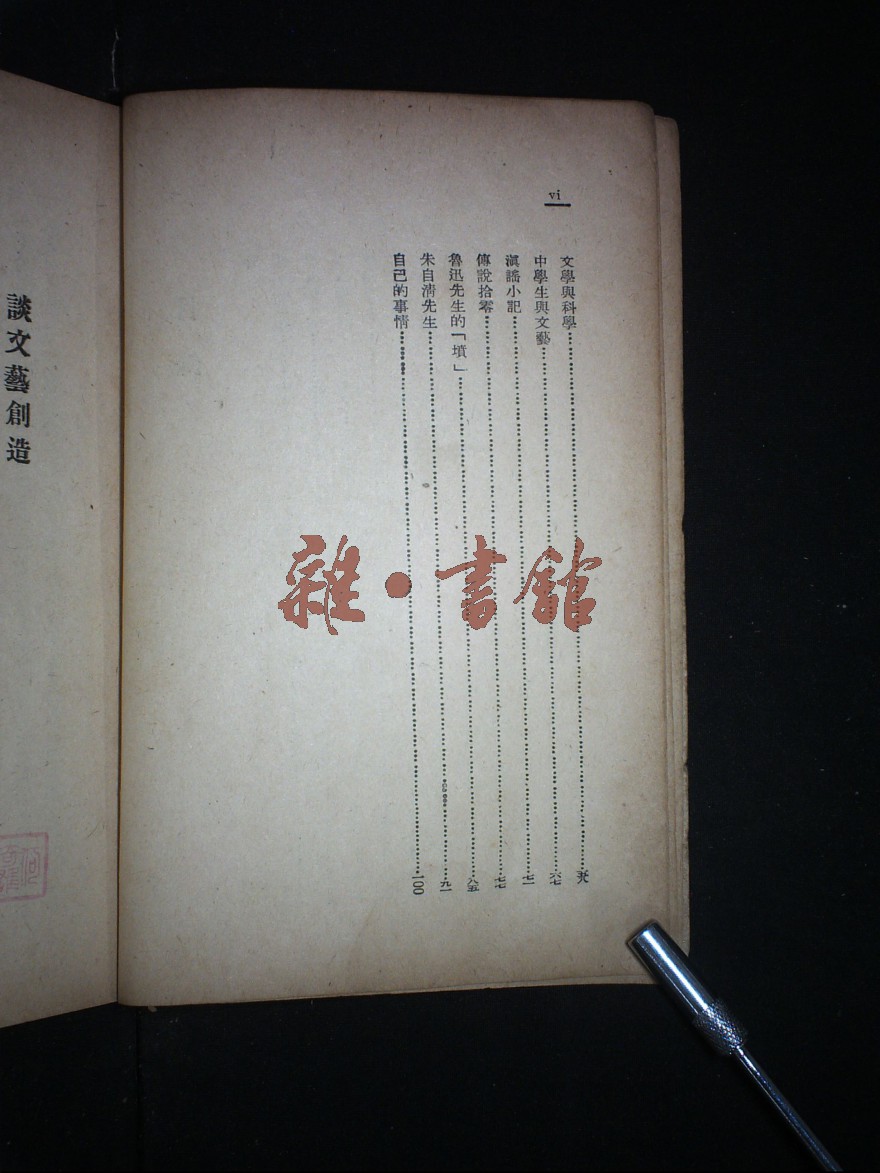 vi
文學與科學
中學生與文藝……六七
滇謠小記……七一
傳說拾零……七七
魯迅先生的「墳」……八五
朱自淸先生……九一
自己的事情……一〇〇
談文藝創造
雜・書館